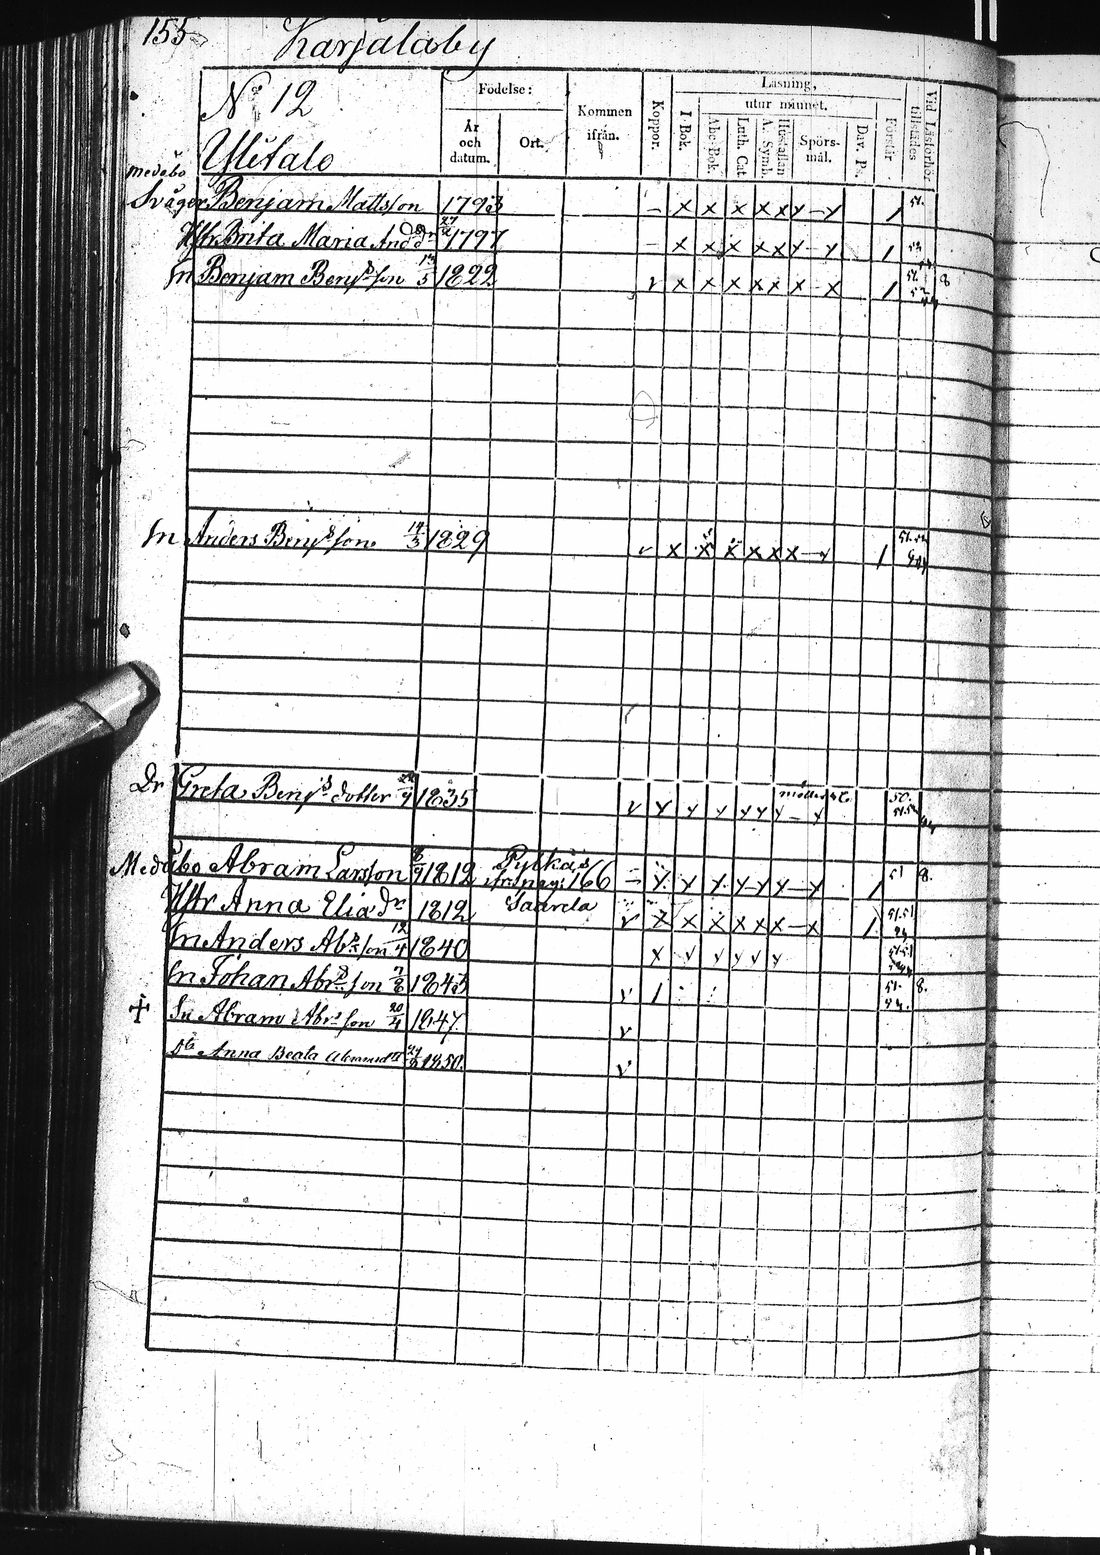 155
Karjalaby
No 12
Ylitalo
Födelse:
År och datum.
Ort.
Kommen ifrån.
Koppor.
Läsning,
I Bok.
utur minnet.
Abc-Bok.
Luth. Cat.
A. Symb.
Hustaflan
Spörsmål.
Dav. Ps.
Förstår
Vid Läsförhör tillstädes
medåbo
Svåger Benjam Mattsson 1793 – x x x x x y – y 1 51.
Hstr Brita Maria And dr 1797 – x x x x x y – y 1
Sn Benjam Benjs son 1822 v x x x x x x – x 1 8
Sn Anders Benjs son 14/3 1829 v x x x x x x – y 1
Dr Greta Benjs dotter 1835 v y y y y y y – y 50.
Medåbo Abram Larsson 8/9 1812 Pytkäs 166 – y y y y y y – y 1 51 8.
Hstr Anna Elia dr 1812 Saarela v x x x x x x – x 1
Sn Anders Abrs son 12/4 1840 x v y v v y
Sn Johan Abrs son 7/8 1843 v 1 51. 8.
+ Sn Abram Abrs son 20/4 1847. v
Anna Beata 1850. v